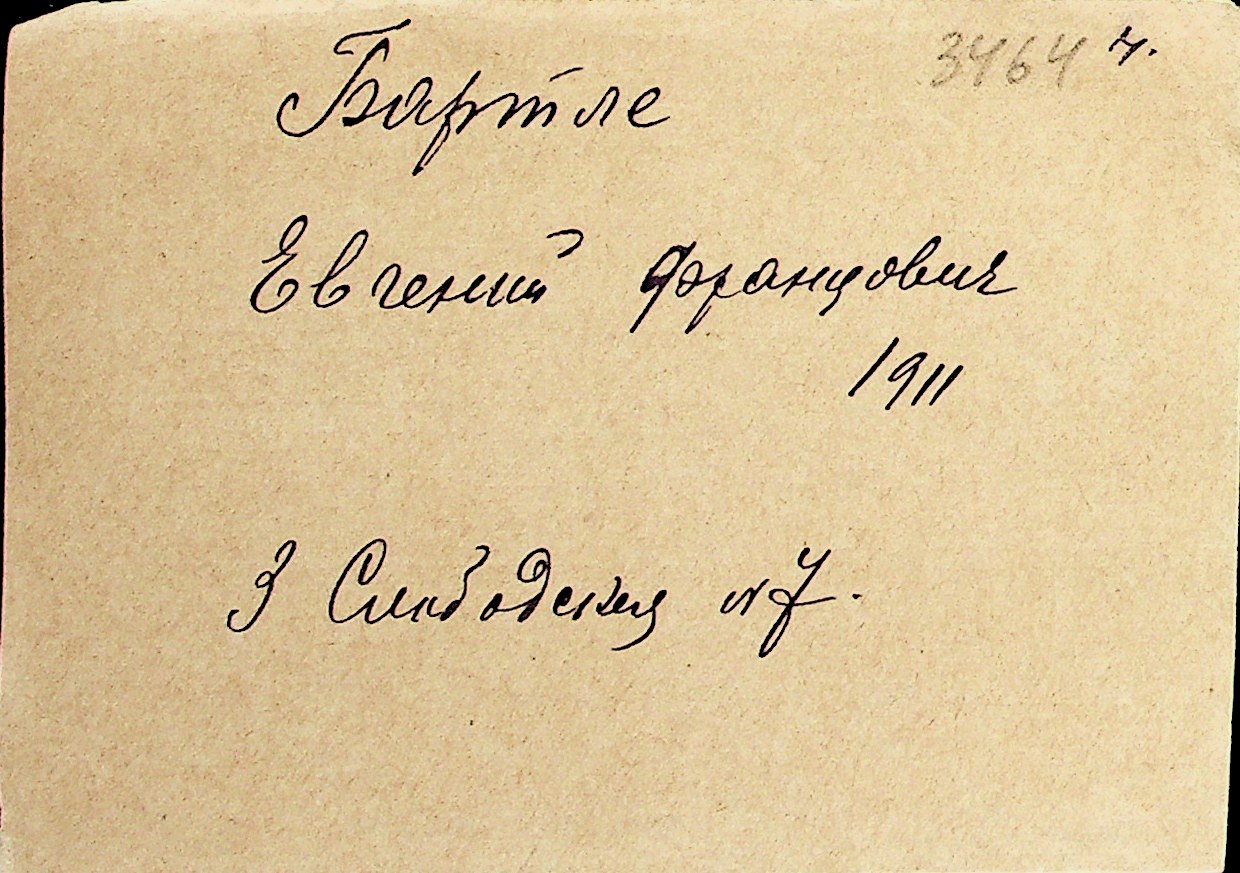 3464 ч.
Бартле
Евгений Францович
1911
3 Слободская №7.